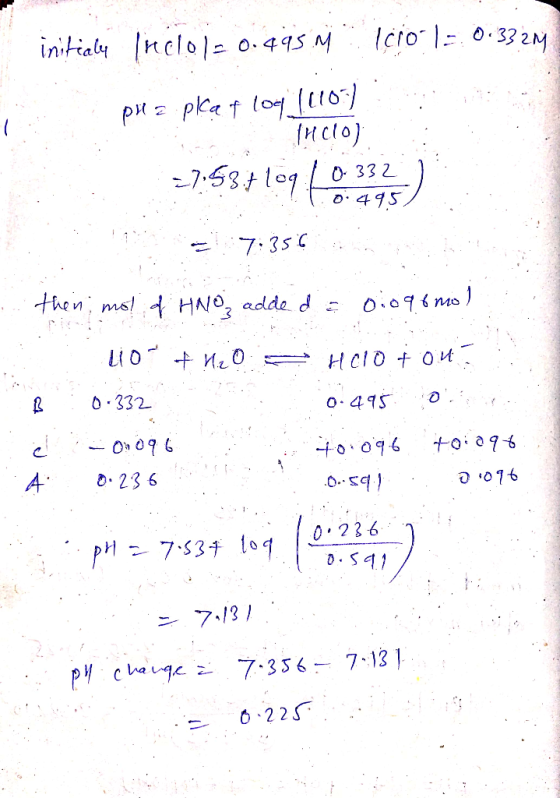 initialy |HClO| = 0.495 M |ClO⁻| = 0.332M
pH = pKa + log |ClO⁻|
|HClO|
= 7.53 + log ( 0.332
0.495 )
= 7.356
then; mol of HNO₃ added = 0.096 mol
ClO⁻ + H₂O ⇌ HClO + OH⁻
B 0.332 0.495 0
C - 0.096 +0.096 +0.096
A 0.236 0.591 0.096
pH = 7.53 + log ( 0.236
0.591 )
= 7.131
pH change = 7.356 - 7.131
= 0.225